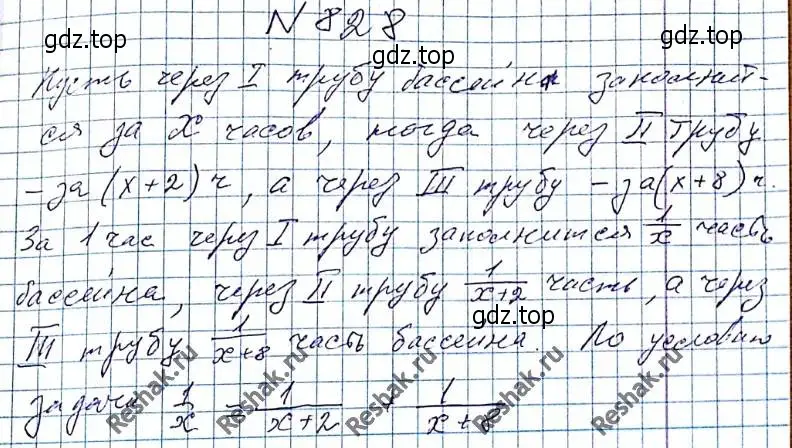 N 828
gdz.top
gdz.top
Пусть через I трубу бассейн заполнит-
ся за x часов, тогда через II трубу
- за (x+2) ч, а через III трубу - за (x+8) ч.
За 1 час через I трубу заполнится 1/x часть
бассейна, через II трубу 1/(x+2) часть, а через
III трубу 1/(x+8) часть бассейна. По условию
задачи 1/x = 1/(x+2) + 1/(x+8)
gdz.top
gdz.top
Reshak.ru
Reshak.ru
Reshak.ru
Reshak.ru